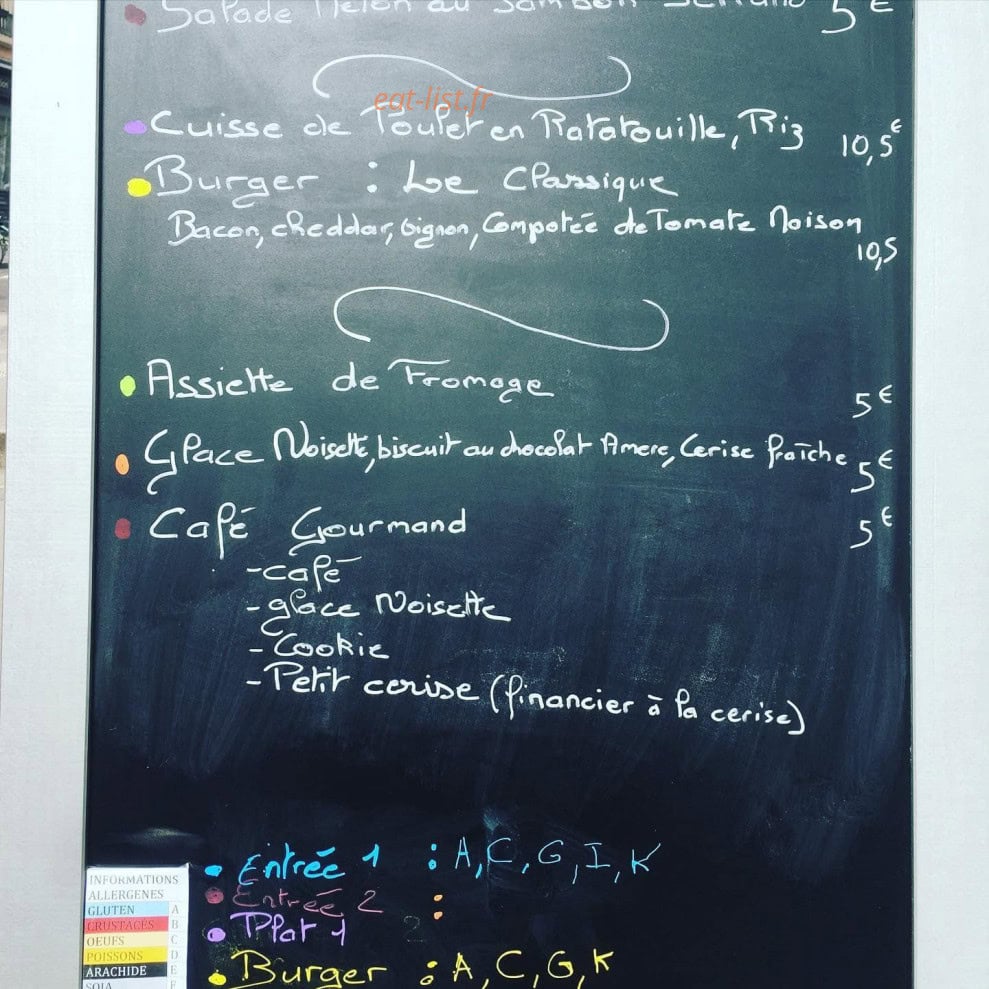 Salade Melon au Jambon Serrano 5 €
eat-list.fr
Cuisse de Poulet en Ratatouille, Riz 10,5 €
Burger : Le Classique
Bacon, cheddar, oignon, Compotée de Tomate Maison
10,5
Assiette de Fromage
5 €
Glace Noisette, biscuit au chocolat Amere, Cerise fraîche 5 €
Café Gourmand 5 €
-café
-glace Noisette
-Cookie
-Petit cerise (financier à la cerise)
Entrée 1 : A, C, G, I, K
Entrée 2 :
Plat 1
Burger : A, C, G, K
INFORMATIONS
ALLERGENES
GLUTEN A
CRUSTACÉS B
OEUFS C
POISSONS D
ARACHIDE E
SOJA F